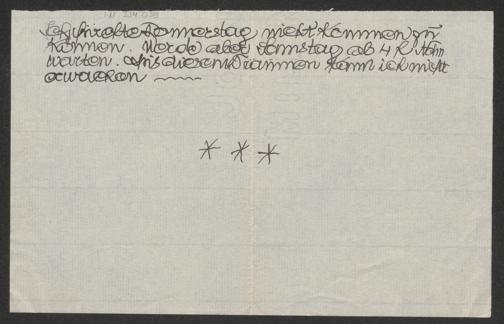 Ich fürchte Donnerstag nicht kommen zu
können. Werde aber Samstag ab 4 h dann
warten. Aus diesem Jammer kann ich nicht
erwachen
* * *